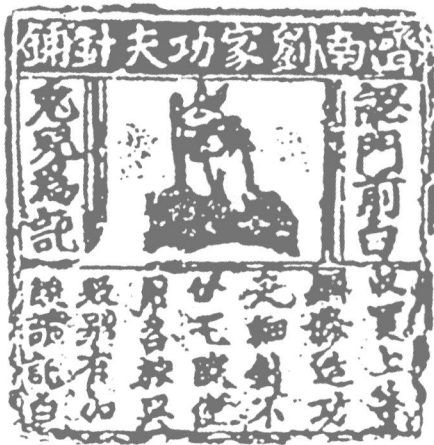 濟南劉家功夫針鋪
認門前白
兔兒爲記
收買上等
鋼條造功
夫細針不
使
用
别有加
饒請記白